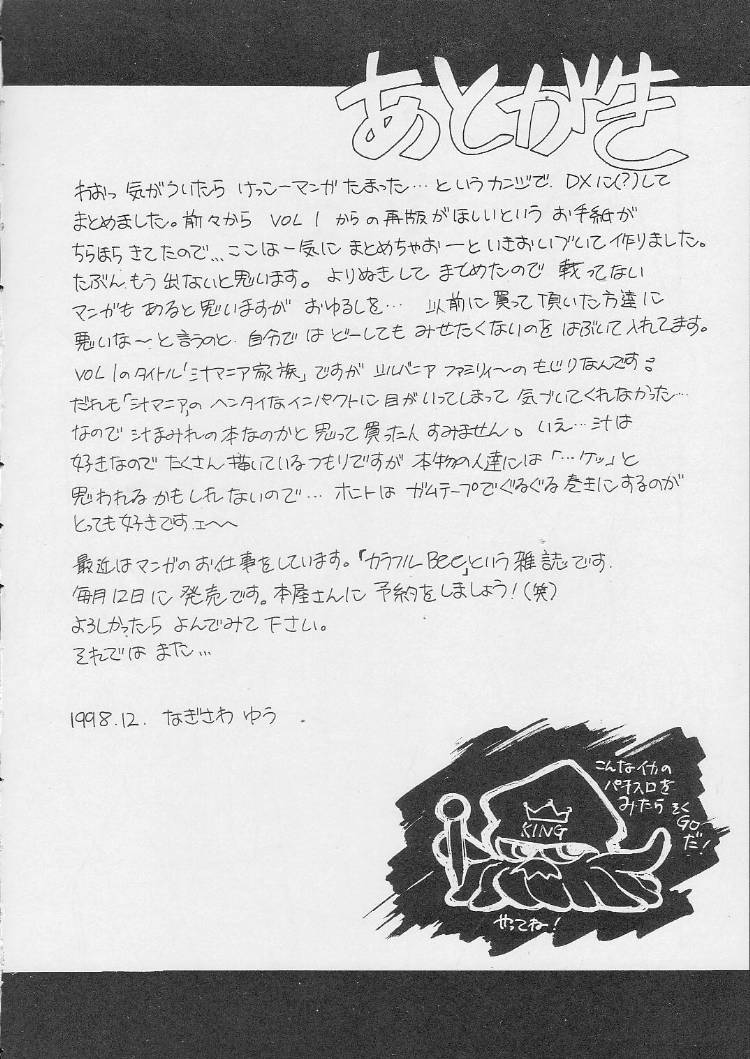 あとがき
わおっ 気がついたら けっこーマンガ たまった… というカンジで、DXに(?)して
まとめました。前々から VOL 1 からの再版がほしいという お手紙が
ちらほら きてたので… ここは一気に まとめちゃおーと いきおいづいて作りました。
たぶん もう 出ないと思います。よりぬきして まとめたので 載ってない
マンガも あると思いますが おゆるしを… 以前に買って頂いた方達に
悪いな〜と言うのと、自分では どーしても みせたくないのを はぶいて入れてます。
VOL 1のタイトル「汁マニア家族」ですが シルバニア ファミリィ〜の もじりなんです。
だれも「汁マニア」の ヘンタイなインパクトに 目がいってしまって 気づいてくれなかった…
なので 汁まみれの本なのかと思って買った人 すみません。いえ…汁は
好きなので たくさん描いているつもりですが 本物の人達には「…ケッ」と
思われるかもしれないので… ホントは ガムテープでぐるぐる巻きにするのが
とっても好きですェ〜〜
最近はマンガのお仕事をしています。「カラフルBee」という雑誌です。
毎月12日に発売です。本屋さんに予約をしましょう!(笑)
よろしかったら よんでみて下さい。
それでは また…
1998.12. なぎさわ ゆう.
こんなイカの
パチスロを
みたら そく
GO
だ!
KING
やってね!